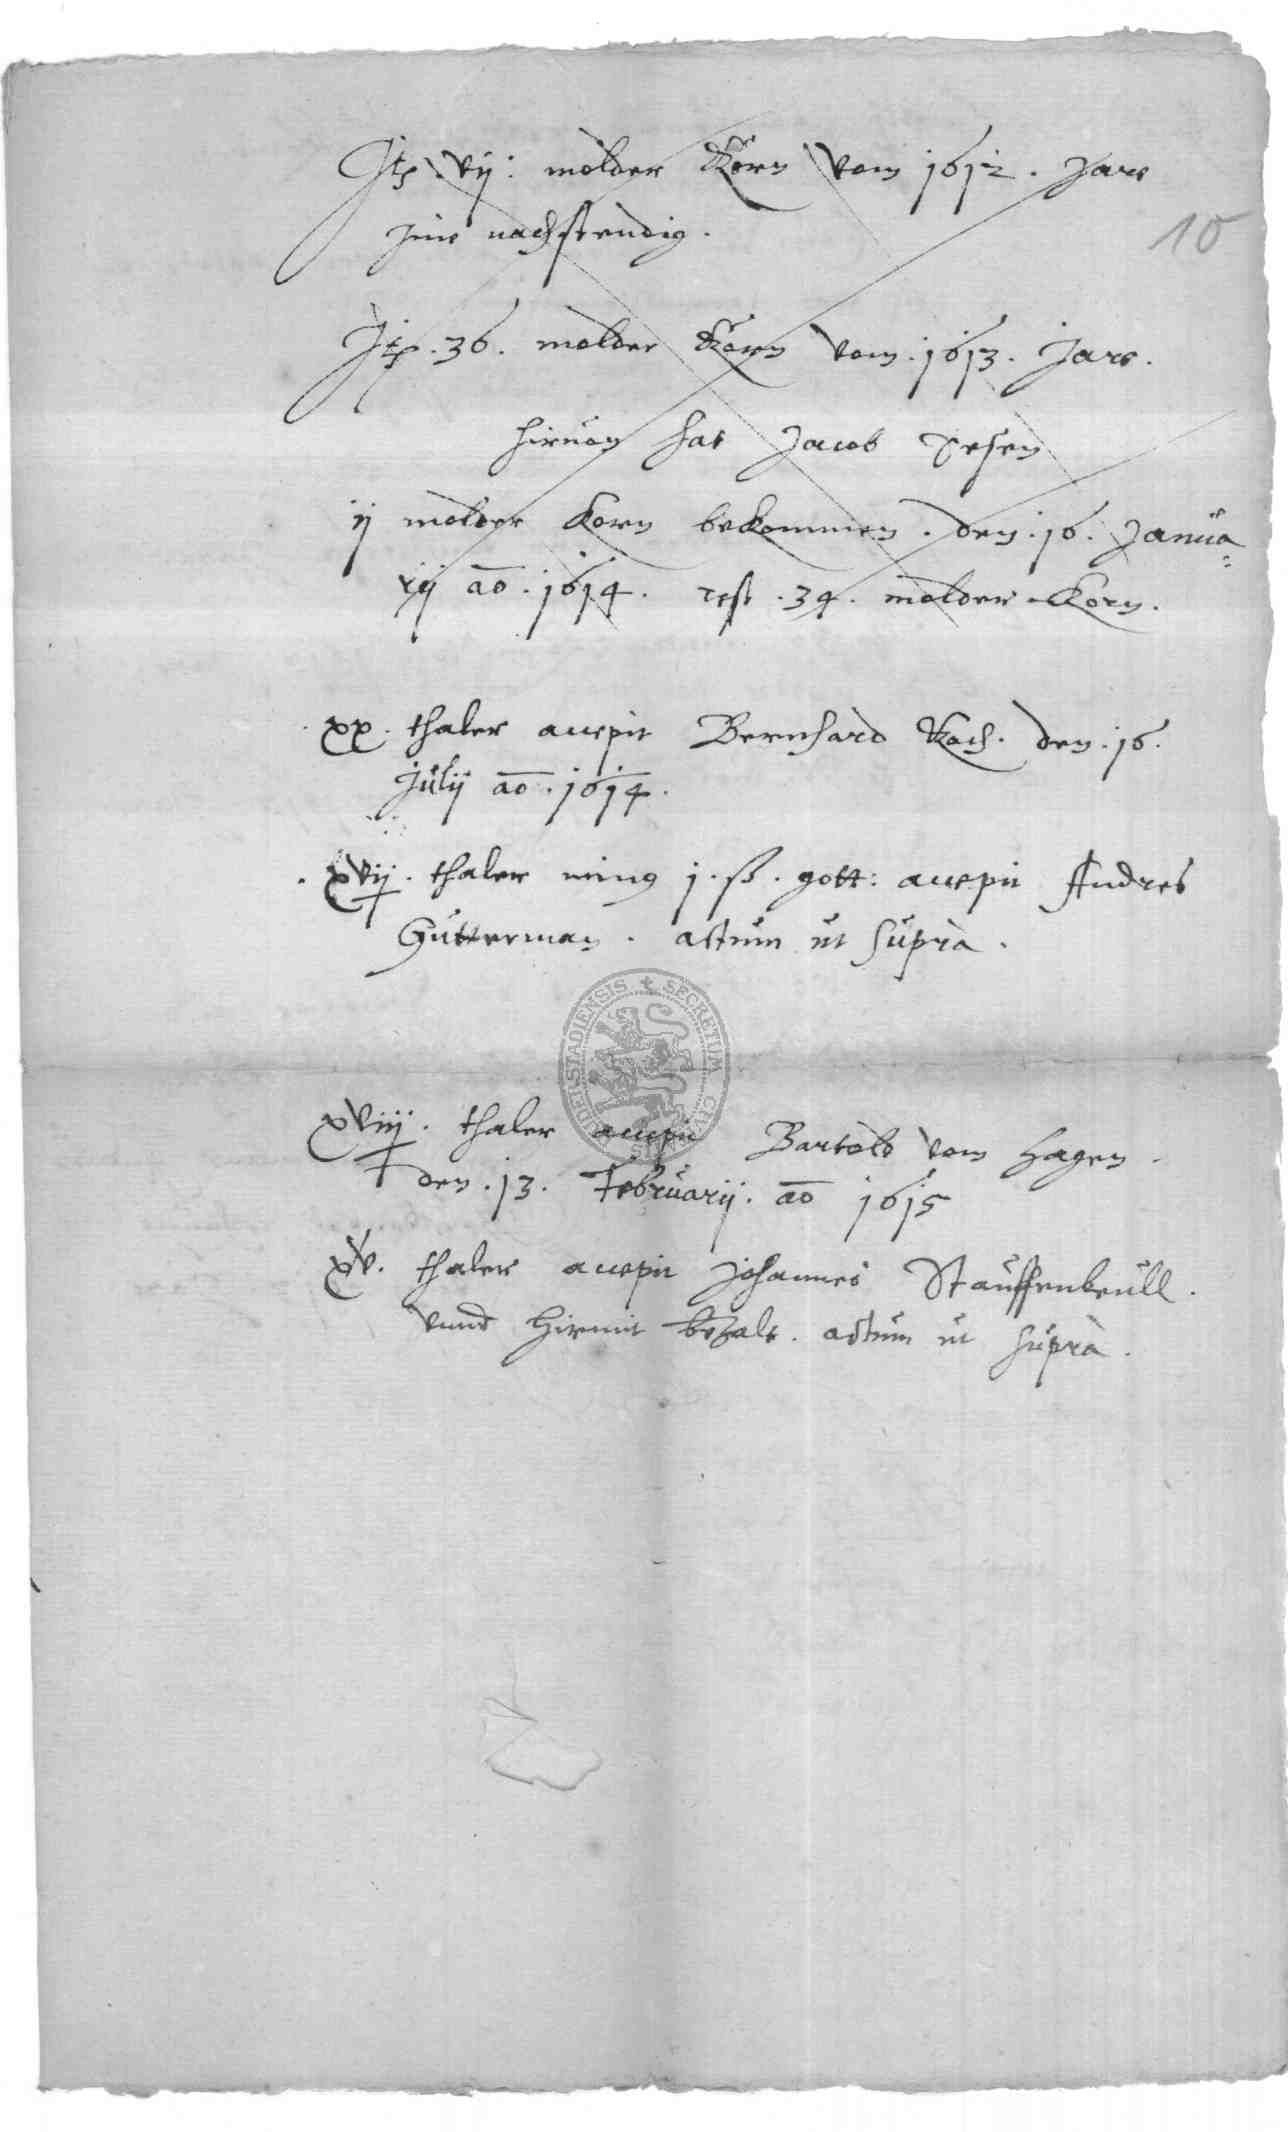 Itz. vij: molder Korn vom 1612. Jare
sine nachstendig.
10
Itz. 36. molder Korn vom. 1613. Jare.
hiruon hat Jacob Desen
ij molder Korn bekommen. den. 16. Janua=
rij ao. 1614. rest. 34. molder Korn.
xx. thaler accepit Bernhard Koch. den. 16.
Julij ao. 1614.
xvij. thaler ming j. ß. gott: accepit Andres
Gutterman. actum ut supra.
SECRETUM CIVI DERSTADIENSIS
xviij. thaler accepit Bartold vom Hagen.
den. 13. Februarij. ao 1615
xv. thaler accepit Johannes Stauffenbeull.
vnnd hirmit bezalt. actum ut supra.